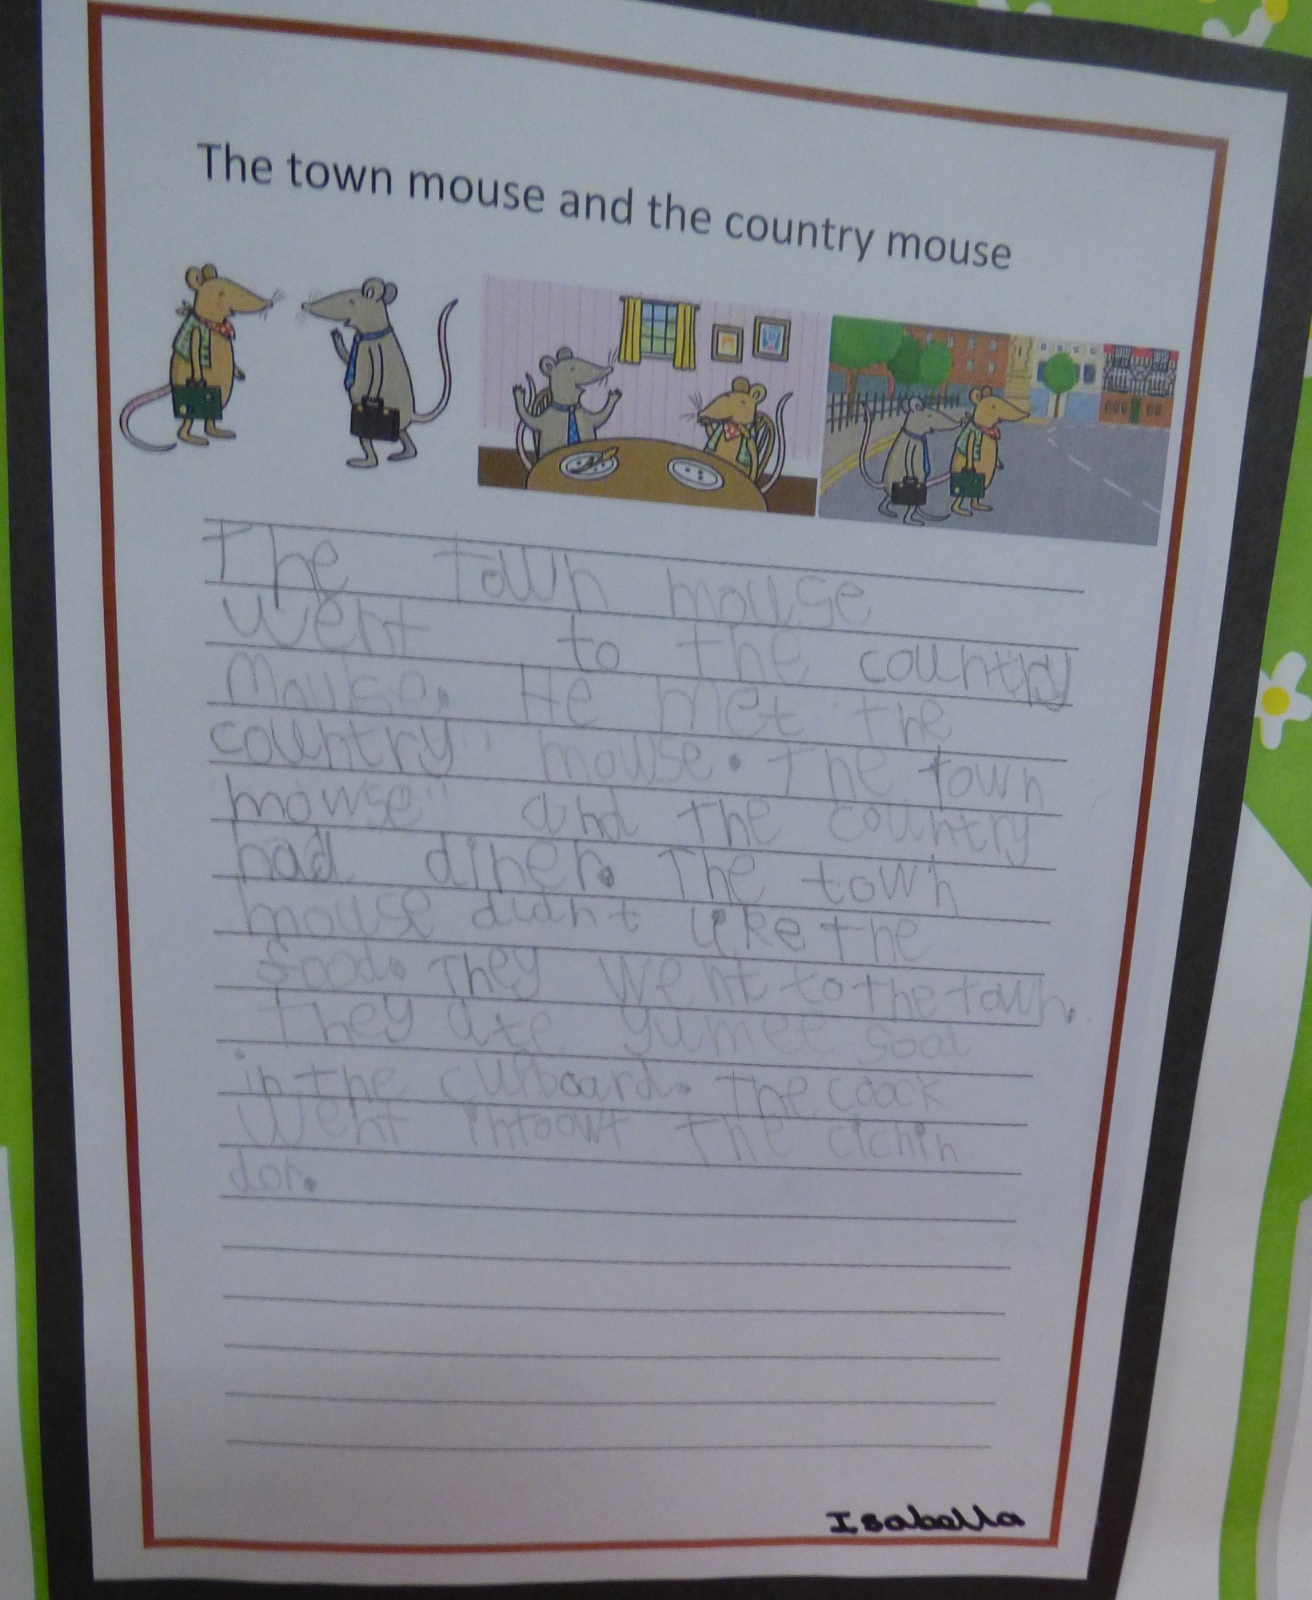 The town mouse and the country mouse
The town mouse
went to the country
mouse. He met the
country mouse. The town
mowse and the country
had diner. The town
mouse didnt like the
food. They went to the town.
They ate yumee
in the cupboard. The coock
went the cichin
dor.
Isabella